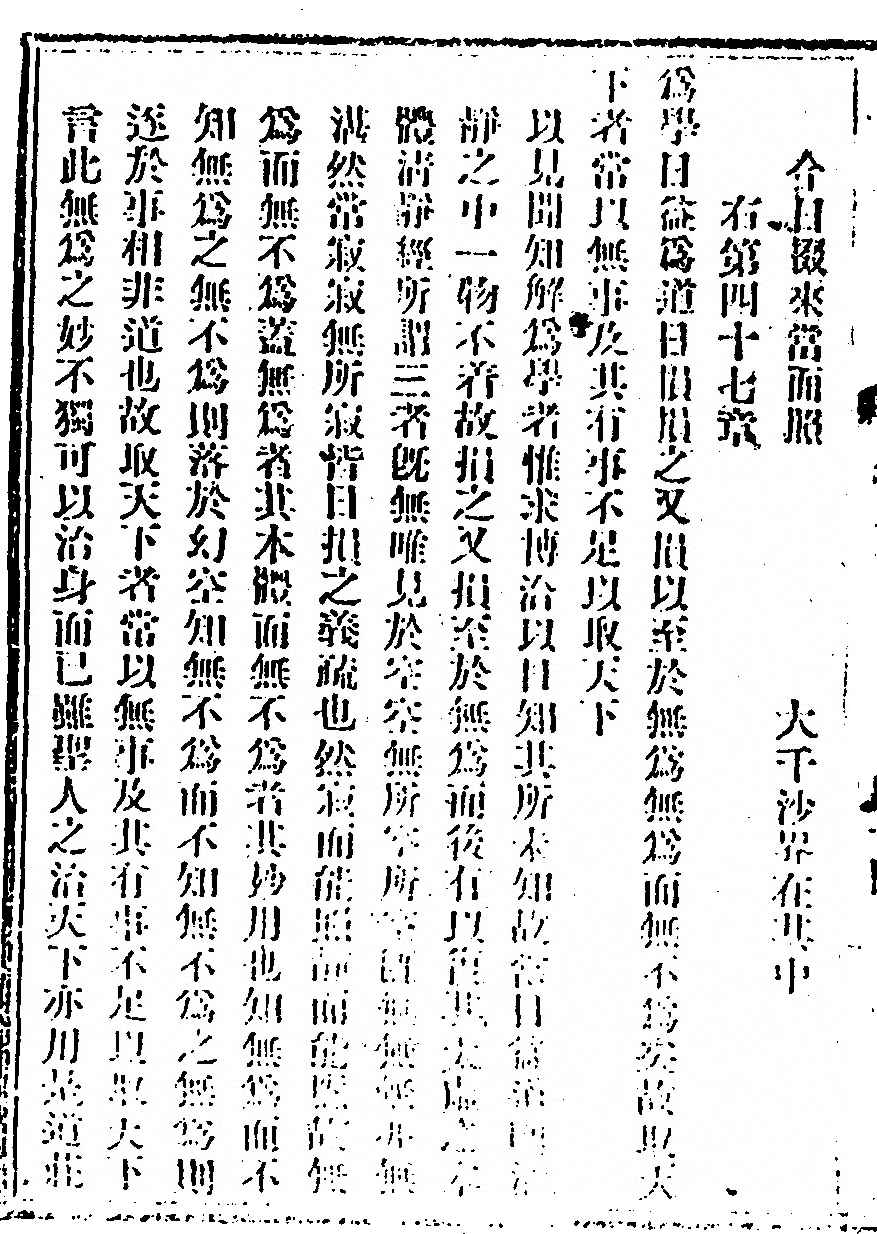 今日掇來當面照　大千沙界在其中
右第四十七章
爲學日益爲道日損損之又損以至於無爲無爲而無不爲矣故取天
下者常以無事及其有事不足以取天下
以見聞知解爲學者惟求博洽以日知其所未知故常日益道則清
靜之中一物不着故損之又損至於無爲而後有以復其太虛之本
體清靜經所謂三者既無唯見於空空無所空所空既無無無亦無
湛然常寂寂無所寂皆日損之義疏也然寂而能照靜而能應故無
爲而無不爲蓋無爲者其本體而無不爲者其妙用也知無爲而不
知無爲之無不爲則落於幻空知無不爲而不知無不爲之無爲則
逐於事相非道也故取天下者常以無事及其有事不足以取天下
言此無爲之妙不獨可以治身而已雖聖人之治天下亦用是道莊